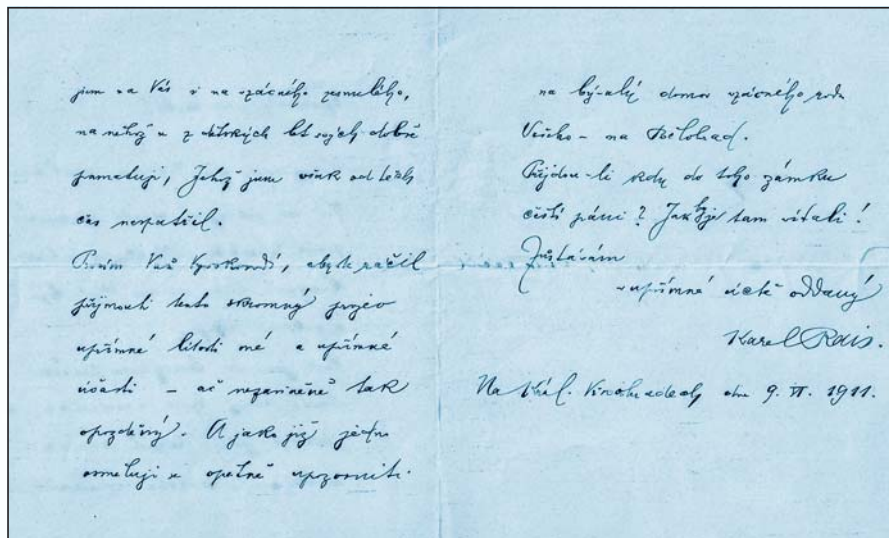 jsem na Vás i na vzácného zesnulého,
na něhož se z dětských let svých dobře
pamatuji, jehož jsem však od těch
čas nespatřil.
Prosím Vaší, abyste ráčil
přijmouti tento skromný projev
upřímné lítosti mé a upřímné
účasti – ač nezaviněně tak
opozděný. A jako již jednou
osměluji se opětně upozorniti
na bývalý domov vzácného rodu
Vašeho – na Bělohrad.
Přijdou-li kdy do toho zámku
čeští páni? Jak by je tam vítali!
Zůstávám
v upřímné úctě oddaný
Karel Rais.
Na Král. Vinohradech dne 9. VI. 1911.